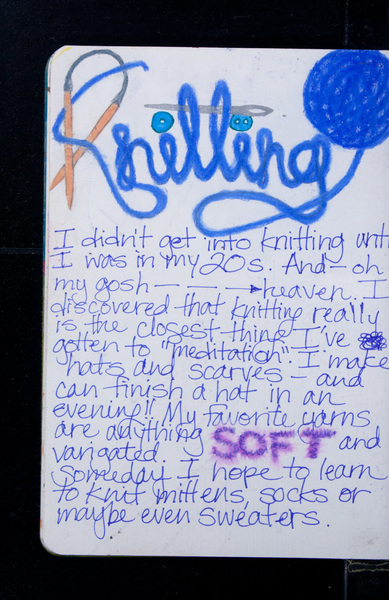 Knitting
I didn't get into knitting unti
I was in my 20s. And - oh
my gosh - - → heaven. I
discovered that knitting really
is the closest thing I've
gotten to "meditation". I make
hats and scarves - and
can finish a hat in an
evening!! My favorite yarns
are anything SOFT and
varigated.
Someday I hope to learn
to knit mittens, socks or
maybe even sweaters.